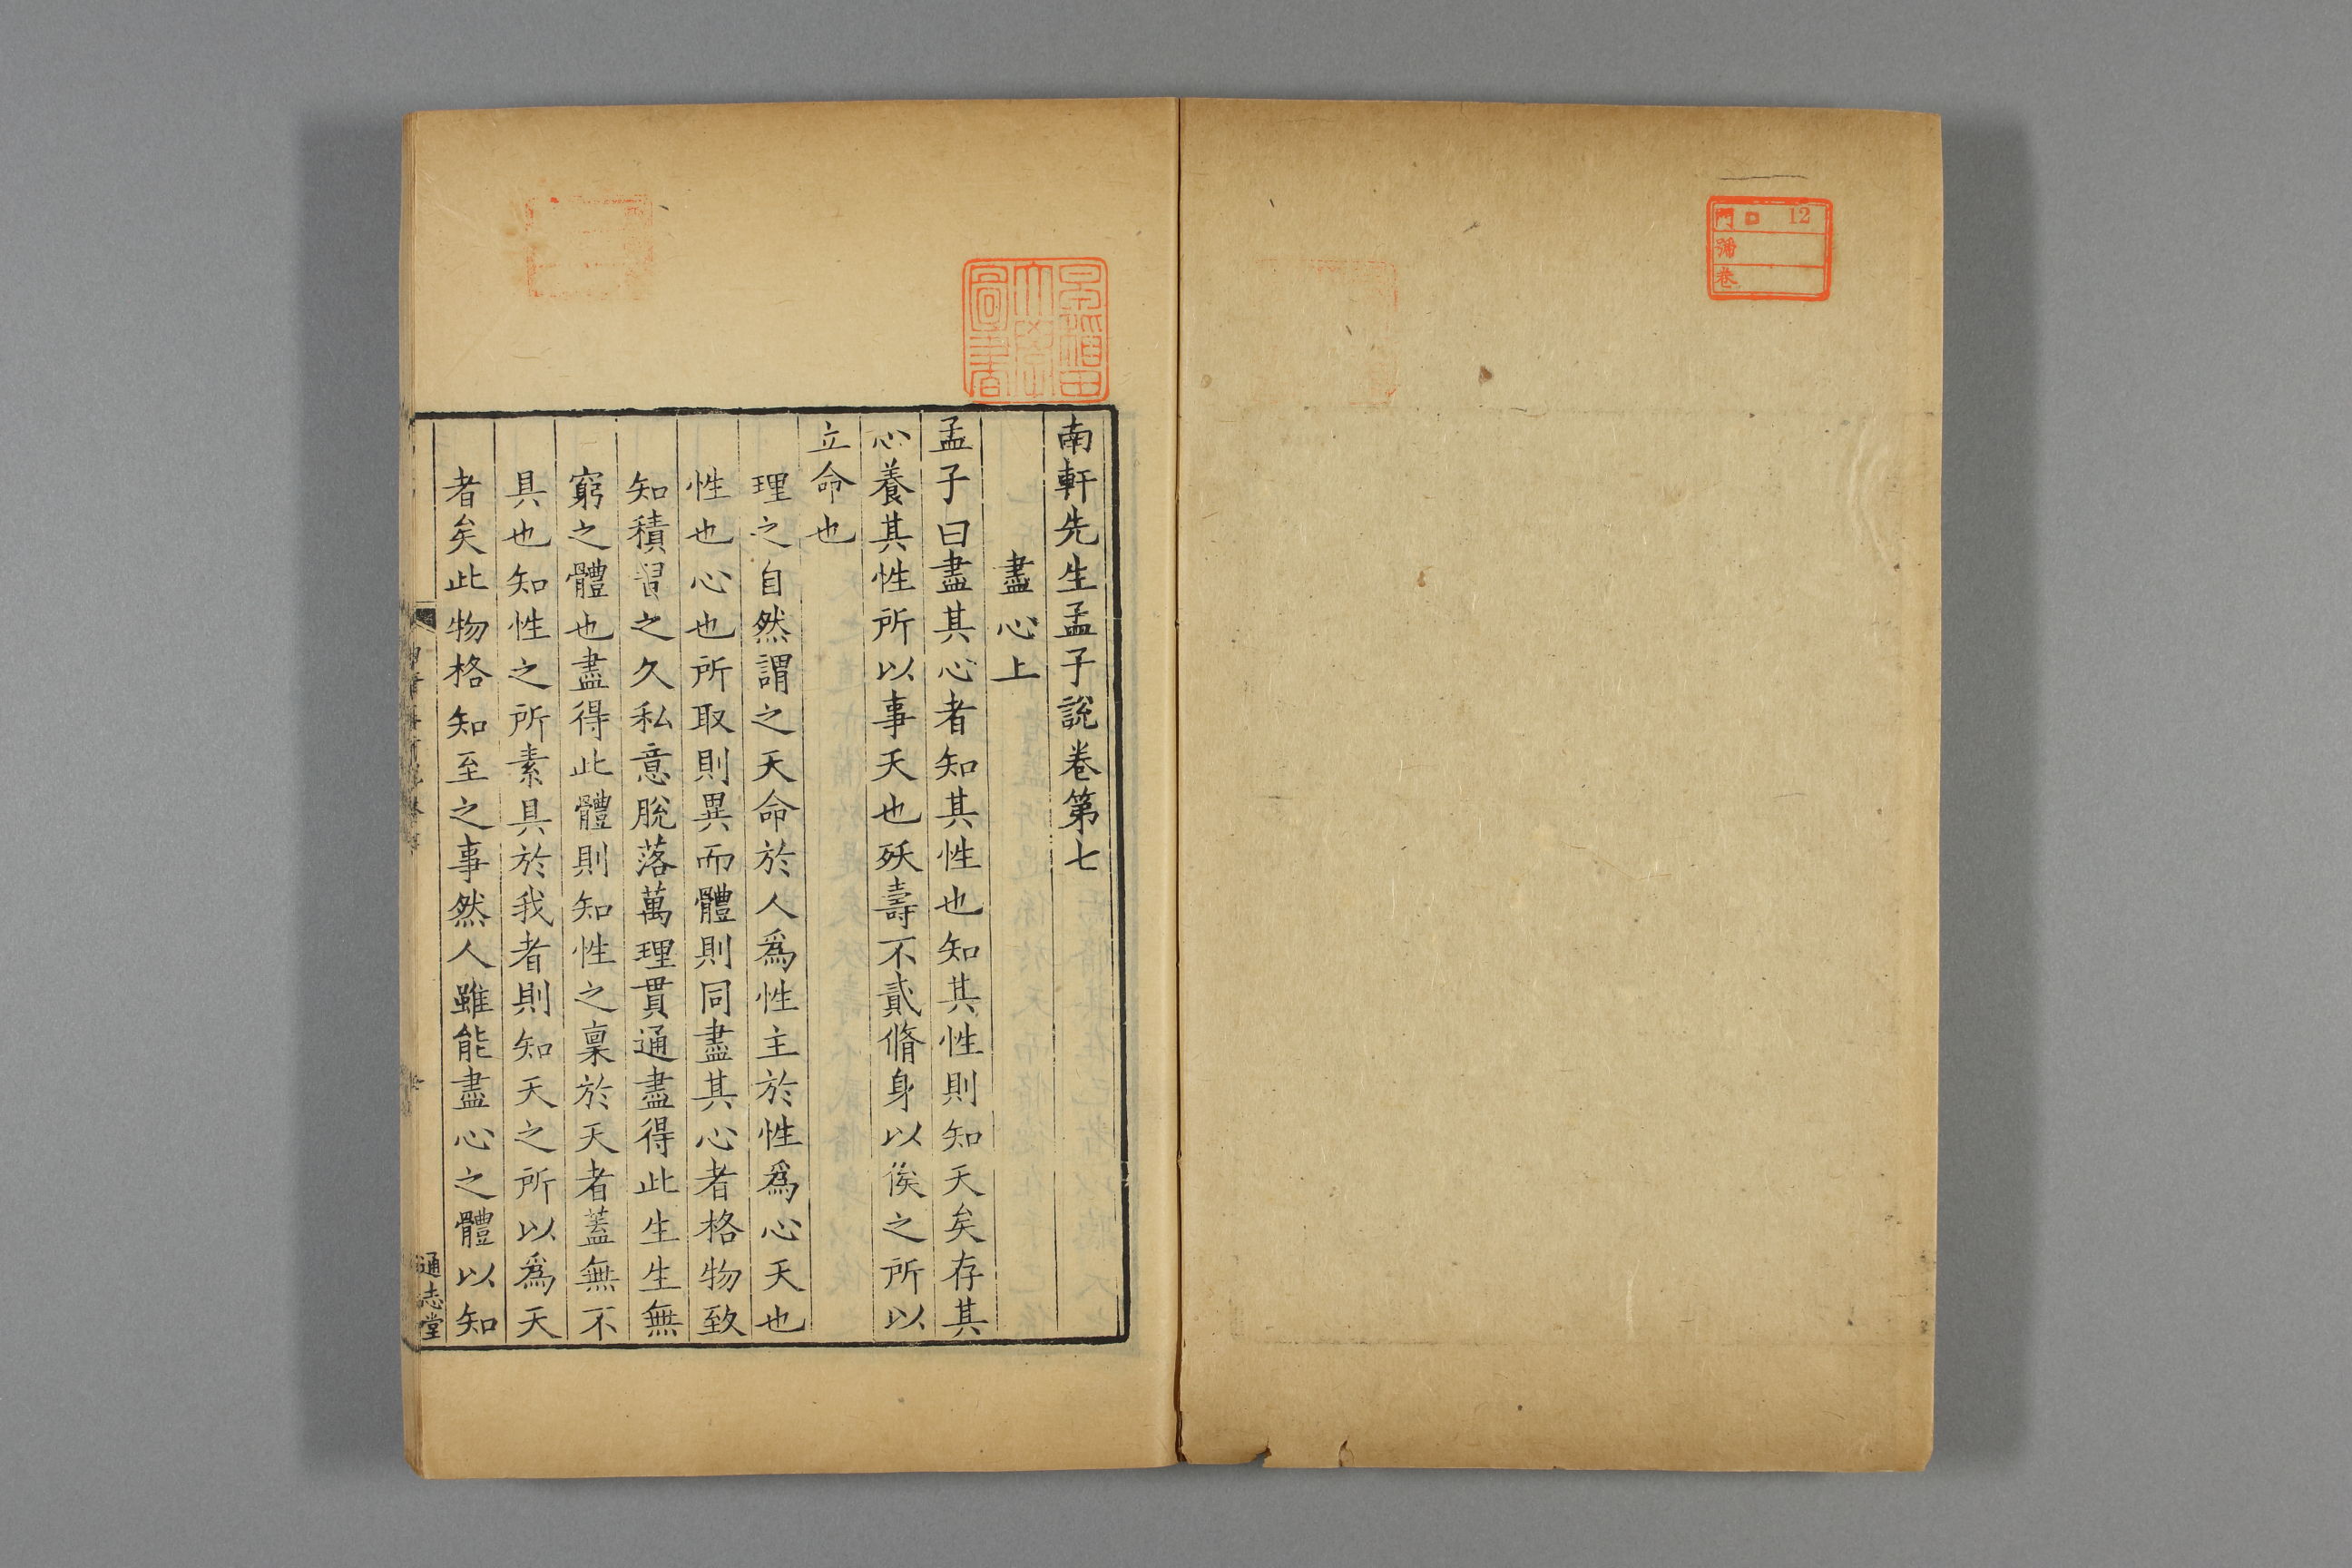 門 口 12
號
卷
早稻田
大學
圖書
南軒先生孟子說卷第七
盡心上
孟子曰盡其心者知其性也知其性則知天矣存其
心養其性所以事天也殀壽不貳脩身以俟之所以
立命也
理之自然謂之天命於人爲性主於性爲心天也
性也心也所取則異而體則同盡其心者格物致
知積習之久私意脫落萬理貫通盡得此生生無
窮之體也盡得此體則知性之稟於天者蓋無不
具也知性之所素具於我者則知天之所以爲天
者矣此物格知至之事然人雖能盡心之體以知
通志堂